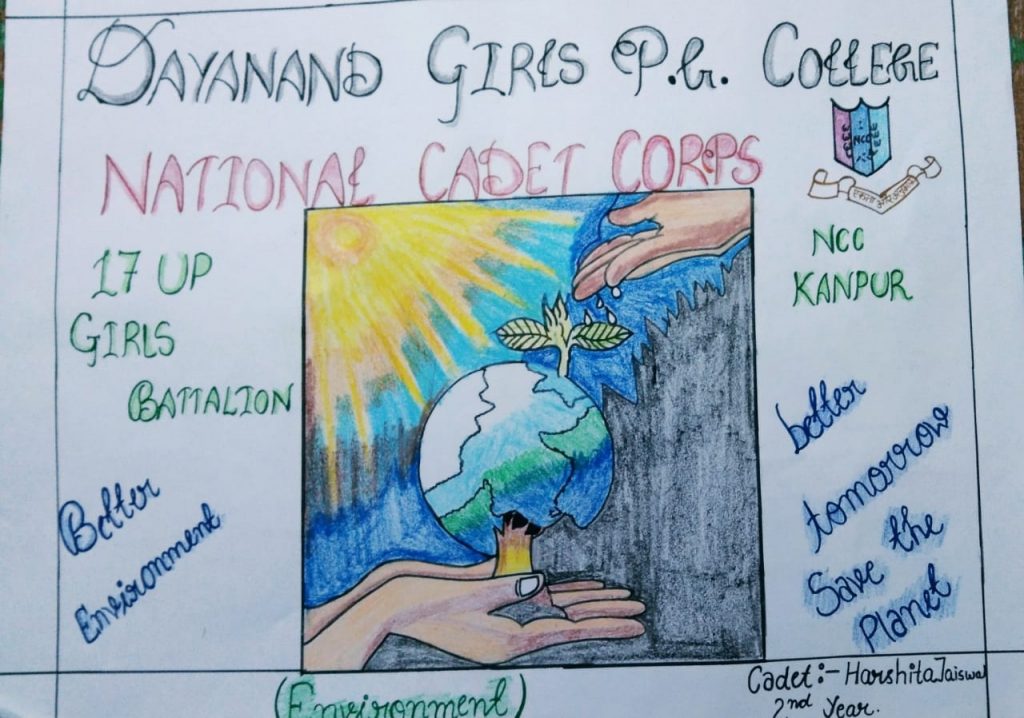 DAYANAND GIRLS P.G. COLLEGE
NATIONAL CADET CORPS
NCC
एकता और अनुशासन
17 UP
GIRLS
BATTALION
NCC
KANPUR
Better
Environment
better
tomorrow
Save the
Planet
(Environment)
Cadet:- Harshita Jaiswal
2nd Year.